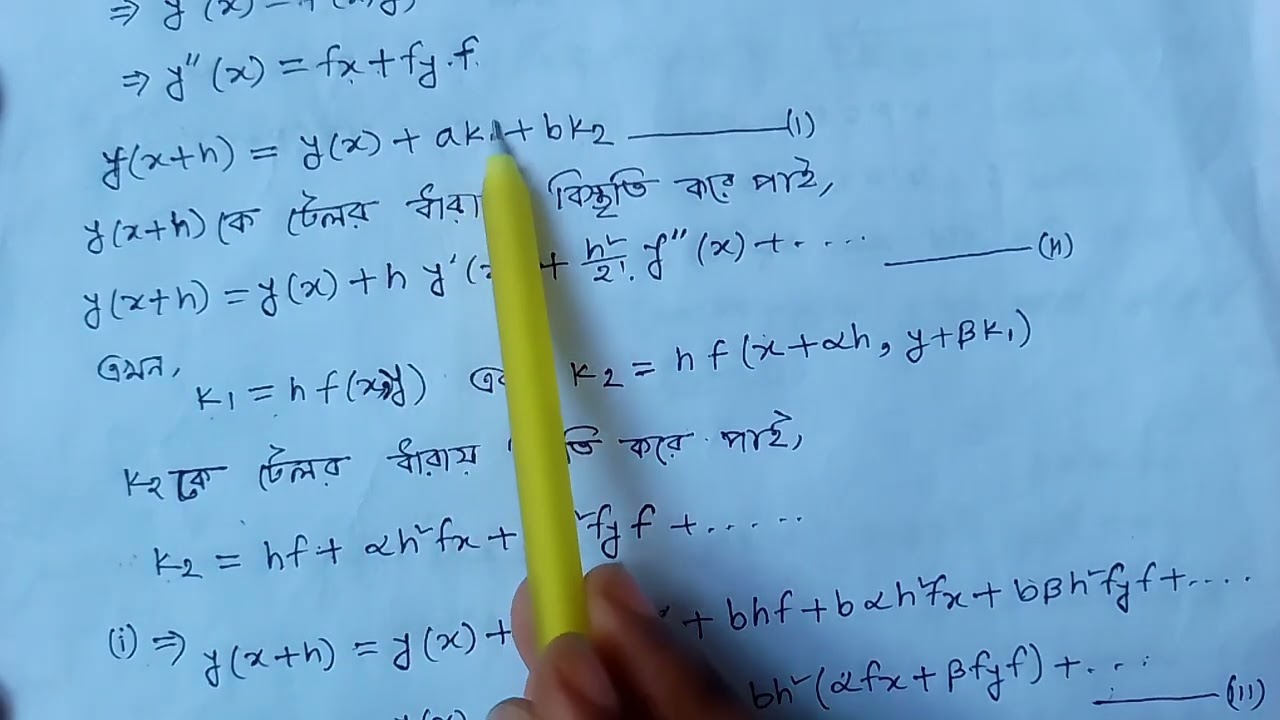 ⇒ y'(x) = f(x,y)
⇒ y''(x) = fx + fy.f
y(x+h) = y(x) + ak₁ + bk₂ ——— (i)
y(x+h) কে টেলর ধারা বিস্তৃতি করে পাই,
y(x+h) = y(x) + h y'( + h²/2! y''(x) + ···· ——— (ii)
এখন,
k₁ = h f(x,y) k₂ = h f(x+αh, y+βk₁)
k₂ কে টেলর ধারায় করে পাই,
k₂ = hf + αh²fx + ²fy f + ·····
(i) ⇒ y(x+h) = y(x) + + bhf + bαh²fx + bβh²fyf + ····
bh²(αfx + βfyf) + ··· ——— (iii)